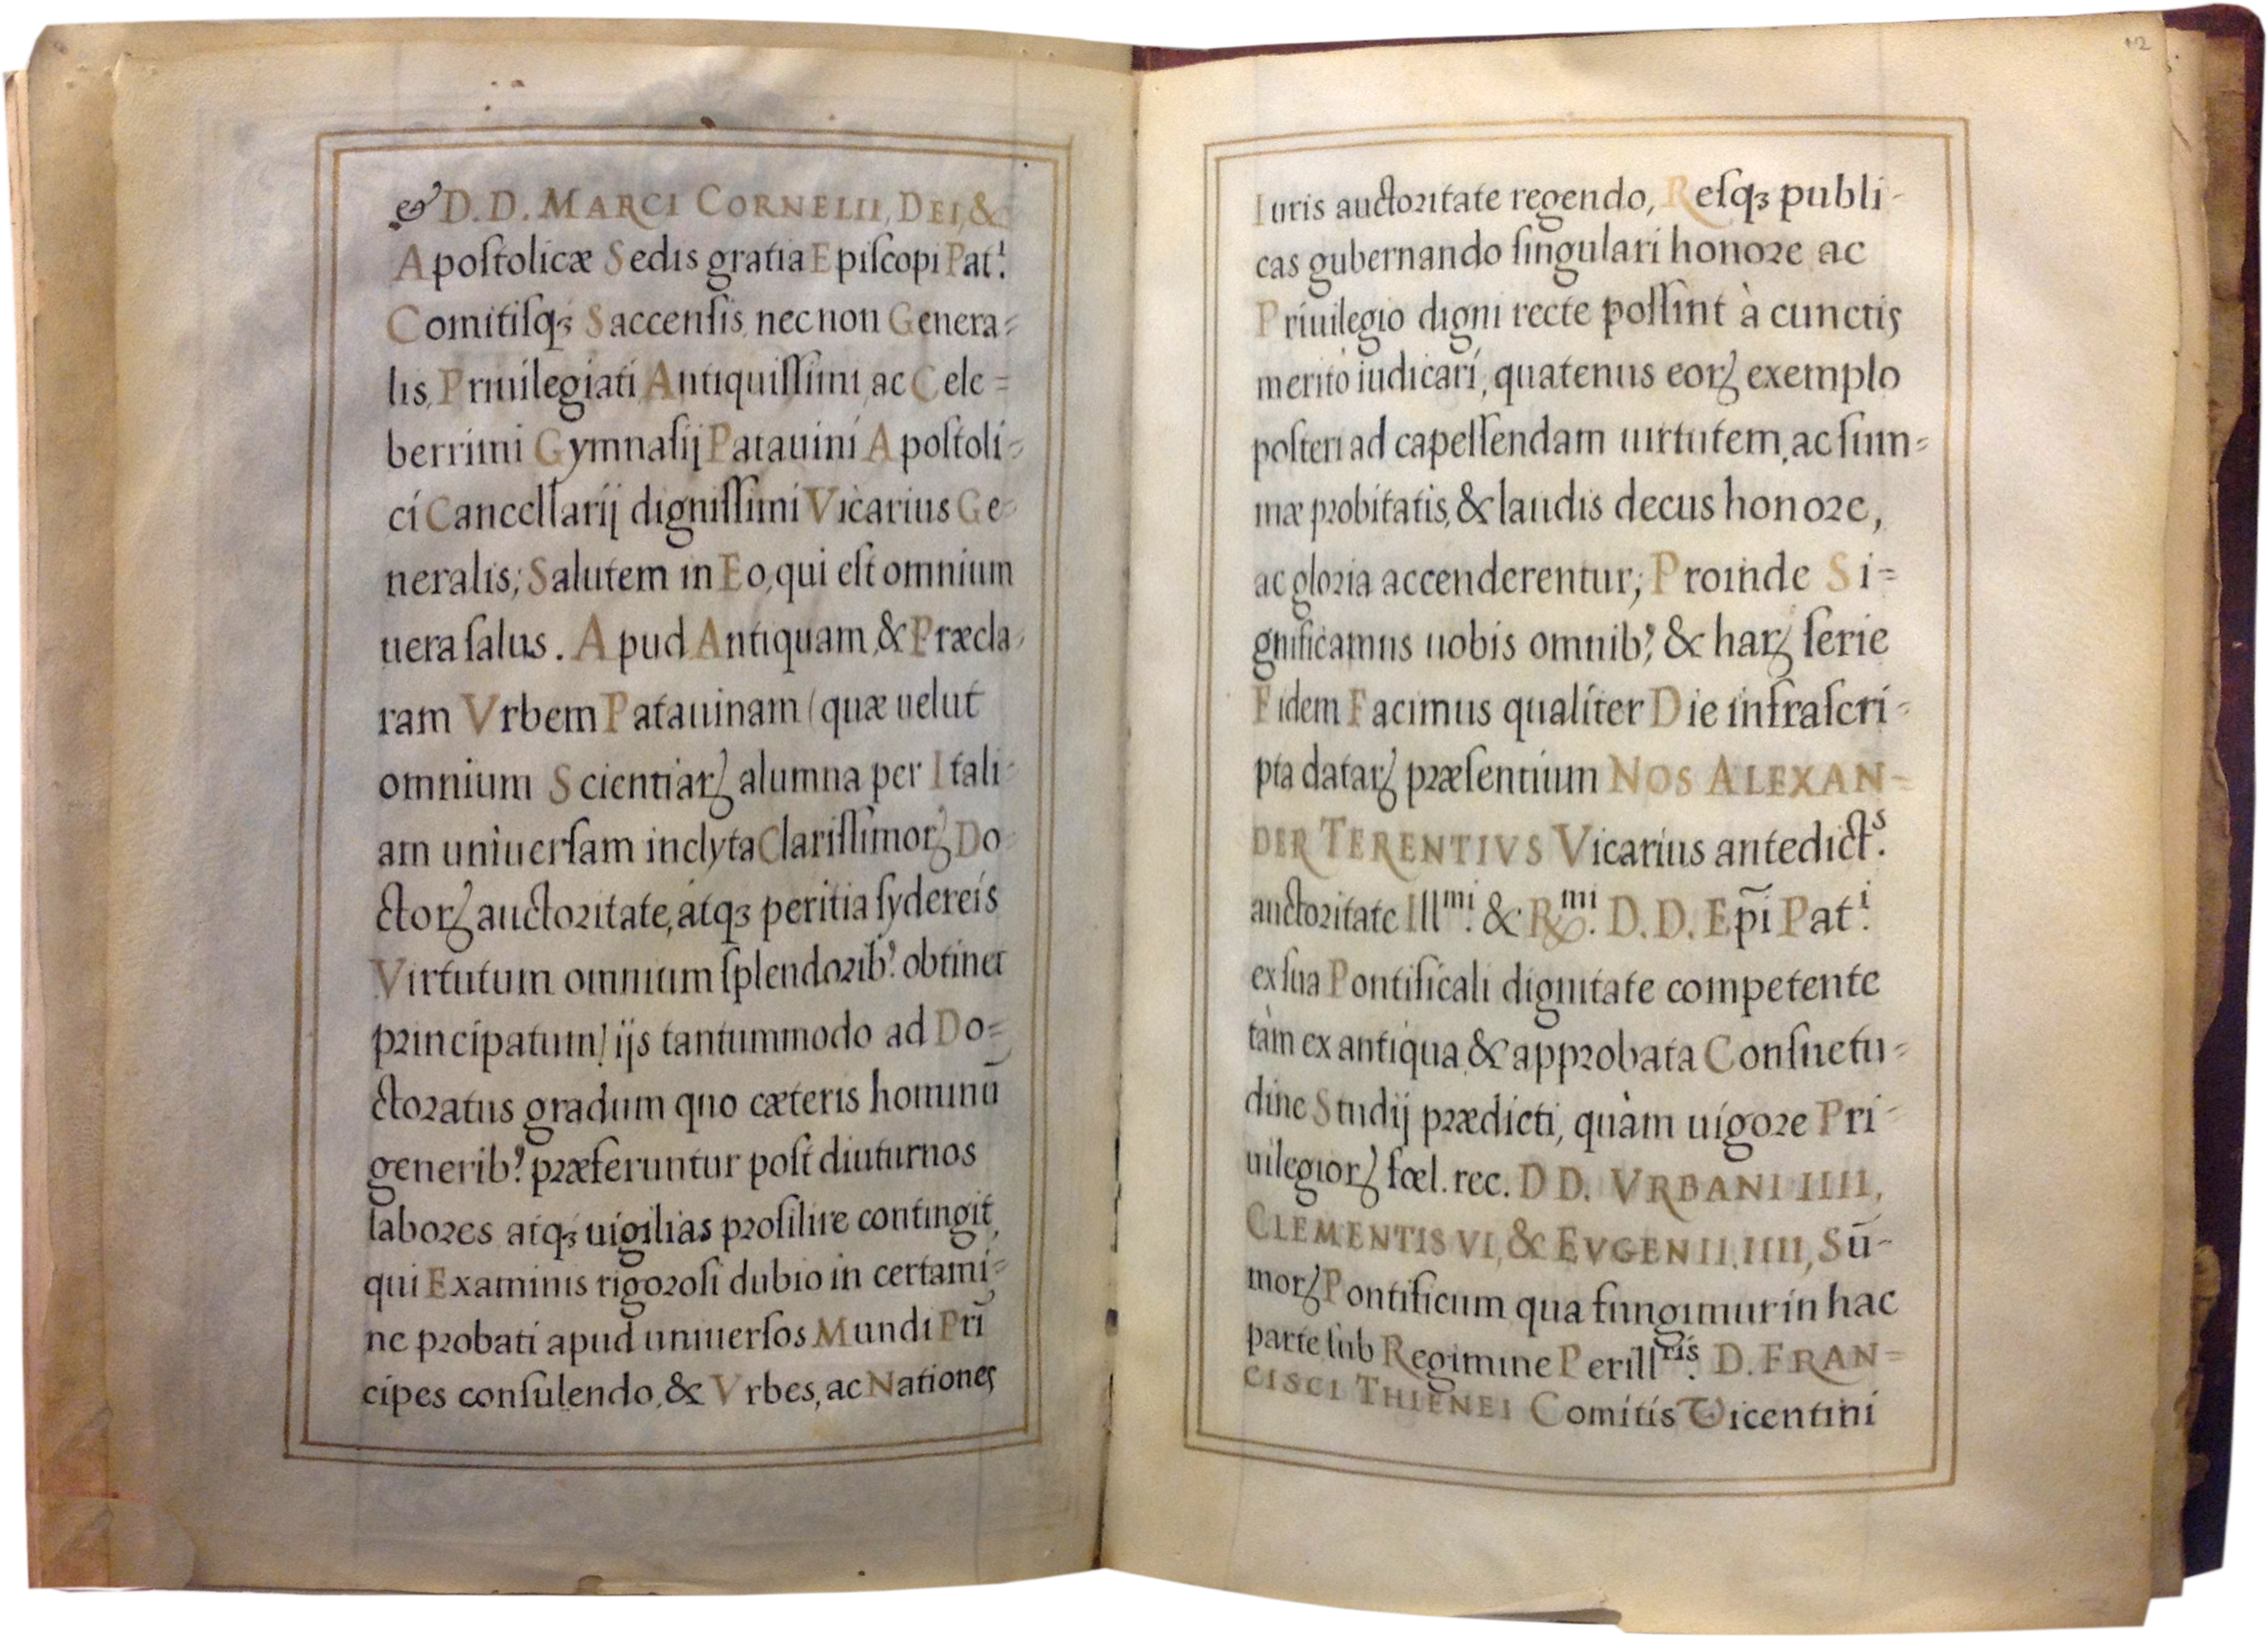 & D. D. MARCI CORNELII, DEI, &
Apoſtolicæ Sedis gratia Epiſcopi Pat.ⁱ
Comitiſqꝫ Saccenſis, necnon Genera⸗
lis, Priuilegiati, Antiquiſſimi, ac Cele⸗
berrimi Gymnaſij Patauini Apoſtoli⸗
ci Cancellarij digniſſimi Vicarius Ge⸗
neralis; Salutem in Eo, qui eſt omnium
uera ſalus. Apud Antiquam, & Præcla⸗
ram Vrbem Patauinam (quæ uelut
omnium Scientiaꝝ alumna per Itali⸗
am uniuerſam inclyta Clariſſimoꝝ Do⸗
ctoꝝ auctoꝛitate, atqꝫ peritia ſydereis
Virtutum omnium ſplendoꝛibꝰ obtinet
pꝛincipatum) ijs tantummodo ad Do⸗
ctoꝛatus gradum quo cæteris hominū
generibꝰ pꝛæferuntur poſt diuturnos
laboꝛes atqꝫ uigilias pꝛoſilire contingit,
qui Examinis rigoꝛoſi dubio in certami⸗
ne pꝛobati apud uniuerſos Mundi Prī
cipes conſulendo, & Vrbes, ac Nationes
12
Iuris auctoꝛitate regendo, Reſqꝫ publi⸗
cas gubernando ſingulari honoꝛe ac
Priuilegio digni recte poſſint à cunctis
merito iudicari, quatenus eoꝝ exemplo
poſteri ad capeſſendam uirtutem, ac ſum⸗
mæ pꝛobitatis, & laudis decus honoꝛe,
ac gloꝛia accenderentur; Proinde Si⸗
gnificamus uobis omnibꝰ, & haꝝ ſerie
Fidem Facimus qualiter Die infraſcri⸗
pta dataꝝ pꝛæſentium NOS ALEXAN⸗
DER TERENTIVS Vicarius antedict.ˢ
auctoꝛitate Ill.ᵐⁱ & R.ᵐⁱ D. D. Epĩ Pat.ⁱ
ex ſua Pontificali dignitate competente
tàm ex antiqua, & appꝛobata Conſuetu⸗
dine Studij pꝛædicti, quàm uigoꝛe Pri⸗
uilegioꝝ fœl. rec. D D. VRBANI IIII,
CLEMENTIS VI, & EVGENII IIII, Sū⸗
moꝝ Pontificum qua fungimur in hac
parte ſub Regimine Perill.ʳⁱˢ D. FRAN⸗
CISCI THIENEI Comitis Vicentini